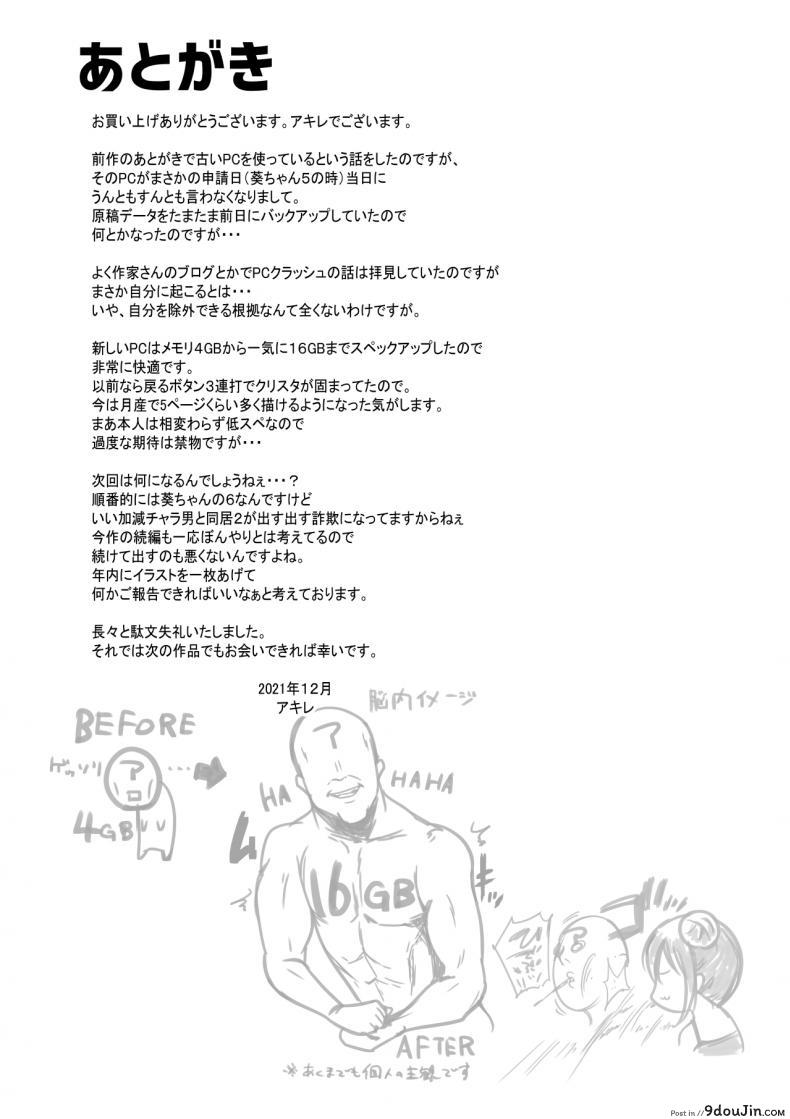 あとがき
お買い上げありがとうございます。アキレでございます。
前作のあとがきで古いPCを使っているという話をしたのですが、
そのPCがまさかの申請日（葵ちゃん5の時）当日に
うんともすんとも言わなくなりまして。
原稿データをたまたま前日にバックアップしていたので
何とかなったのですが・・・
よく作家さんのブログとかでPCクラッシュの話は拝見していたのですが
まさか自分に起こるとは・・・
いや、自分を除外できる根拠なんて全くないわけですが。
新しいPCはメモリ4GBから一気に16GBまでスペックアップしたので
非常に快適です。
以前なら戻るボタン3連打でクリスタが固まってたので。
今は月産で5ページくらい多く描けるようになった気がします。
まあ本人は相変わらず低スペなので
過度な期待は禁物ですが・・・
次回は何になるんでしょうねぇ・・・？
順番的には葵ちゃんの6なんですけど
いい加減チャラ男と同居2が出す出す詐欺になってますからねぇ
今作の続編も一応ぼんやりとは考えてるので
続けて出すのも悪くないんですよね。
年内にイラストを一枚あげて
何かご報告できればいいなぁと考えております。
長々と駄文失礼いたしました。
それでは次の作品でもお会いできれば幸いです。
2021年12月
アキレ
脳内イメージ
BEFORE
ゲッソリ
ア
ロ
・・・
4GB
ア
HA
HAHA
ムキッ
16GB
AFTER
※あくまでも個人の主観です
Post in // 9douJin.com